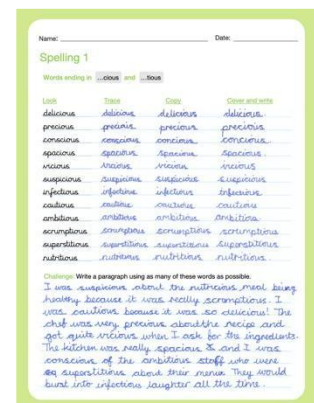 Name: Date:
Spelling 1
Words ending in ...cious and ...tious
Look Trace Copy Cover and write
delicious delicious delicious delicious
precious precious precious precious
conscious conscious concious concious
spacious spacious spacious spacious
vicious vicious vicious vicious
suspicious suspicious suspicious suspicious
infectious infectious infectious infectious
cautious cautious cautious cautious
ambitious ambitious ambitious ambitious
scrumptious scrumptious scrumptious scrumptious
superstitious superstitious superstitious superstitious
nutritious nutritious nutritious nutritious
Challenge: Write a paragraph using as many of these words as possible.
I was suspicious about the nutricious meal being
healthy because it was really scrumptious. I
was cautious because it was so delicious! The
chef was very precious about the recipe and
got quite vicious when I ask for the ingredients.
The kitchen was really spacious & and I was
conscious of the ambitious staff who were
superstitious about their menu. They would
burst into infectious laughter all the time.